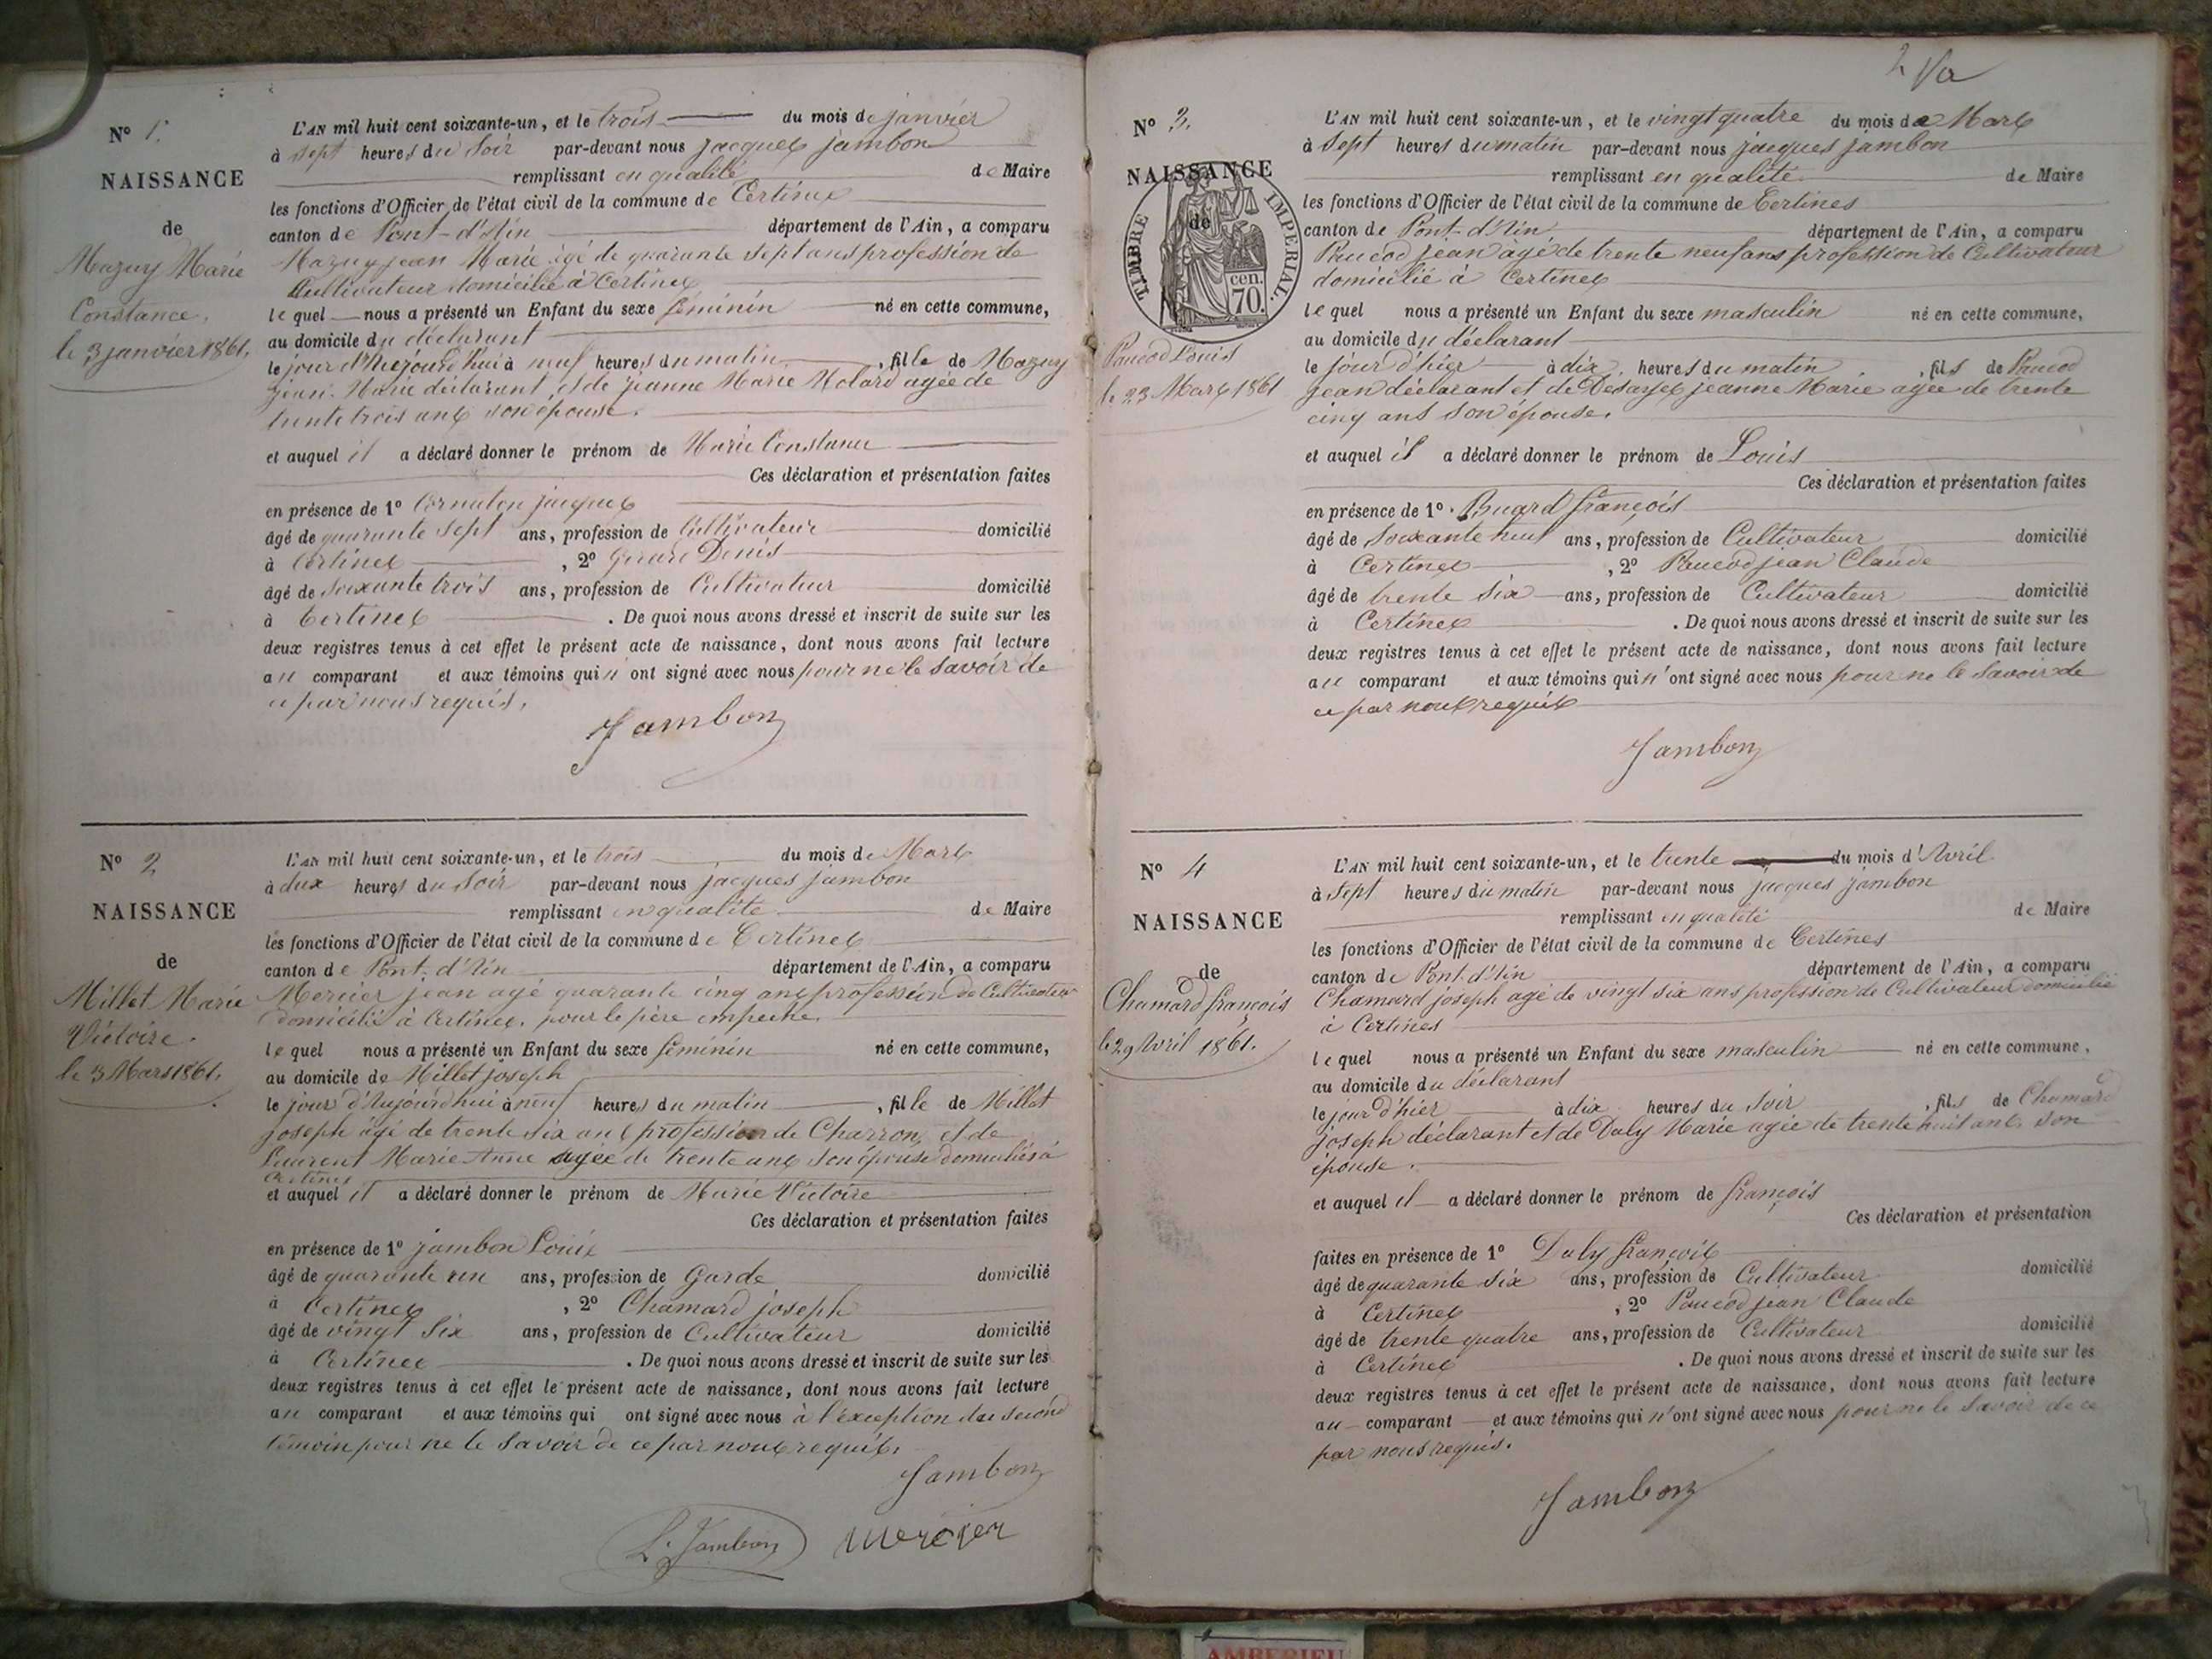 N° 1.
NAISSANCE
de
Mazuy Marie
Constance.
le 3 janvier 1861.
L'AN mil huit cent soixante-un, et le trois du mois de janvier
à sept heures du soir par-devant nous jacques jambon
remplissant en qualité de Maire
les fonctions d'Officier de l'état civil de la commune de Certines
canton de Pont-d'Ain département de l'Ain, a comparu
Mazuy jean Marie agé de quarante sept ans profession de
Cultivateur domicilié à Certines
le quel nous a présenté un Enfant du sexe féminin né en cette commune,
au domicile du déclarant
le jour d'Aujourd'hui à neuf heures du matin, fille de Mazuy
jean Marie déclarant et de jeanne Marie Molard agée de
trente trois ans son épouse.
et auquel il a déclaré donner le prénom de Marie Constance
Ces déclaration et présentation faites
en présence de 1° Cornaton jacques
âgé de quarante sept ans, profession de Cultivateur domicilié
à Certines, 2° Denis
âgé de soixante trois ans, profession de Cultivateur domicilié
à Certines. De quoi nous avons dressé et inscrit de suite sur les
deux registres tenus à cet effet le présent acte de naissance, dont nous avons fait lecture
au comparant et aux témoins qui n'ont signé avec nous pour ne le savoir de
ce par nous requis.
Jambon
N° 2
NAISSANCE
de
Millet Marie
Victoire.
le 3 Mars 1861.
L'AN mil huit cent soixante-un, et le trois du mois de Mars
à deux heures du soir par-devant nous jacques jambon
remplissant en qualité de Maire
les fonctions d'Officier de l'état civil de la commune de Certines
canton de Pont-d'Ain département de l'Ain, a comparu
Mercier jean agé quarante cinq ans profession de Cultivateur
domicilié à Certines, pour le père empêché.
le quel nous a présenté un Enfant du sexe féminin né en cette commune,
au domicile de Millet joseph
le jour d'Aujourd'hui à neuf heures du matin, fille de Millet
joseph agé de trente six ans profession de Charron, et de
Laurent Marie Anne agée de trente ans son épouse domiciliés à
Certines
et auquel il a déclaré donner le prénom de Marie Victoire
Ces déclaration et présentation faites
en présence de 1° jambon Louis
âgé de quarante un ans, profession de Garde domicilié
à Certines, 2° Chamard joseph
âgé de vingt six ans, profession de Cultivateur domicilié
à Certines. De quoi nous avons dressé et inscrit de suite sur les
deux registres tenus à cet effet le présent acte de naissance, dont nous avons fait lecture
au comparant et aux témoins qui ont signé avec nous à l'exception du second
témoin pour ne le savoir de ce par nous requis.
Jambon
L. Jambon Mercier
2
N° 3.
NAISSANCE
de
TIMBRE IMPÉRIAL.
70. cen.
Paucod Louis
le 23 Mars 1861
L'AN mil huit cent soixante-un, et le vingt quatre du mois de Mars
à sept heures du matin par-devant nous jacques jambon
remplissant en qualité de Maire
les fonctions d'Officier de l'état civil de la commune de Certines
canton de Pont-d'Ain département de l'Ain, a comparu
Paucod jean agé de trente neuf ans profession de Cultivateur
domicilié à Certines
le quel nous a présenté un Enfant du sexe masculin né en cette commune,
au domicile du déclarant
le jour d'hier à dix heures du matin, fils de Paucod
jean déclarant et de jeanne Marie agée de trente
cinq ans son épouse.
et auquel il a déclaré donner le prénom de Louis
Ces déclaration et présentation faites
en présence de 1° Buard françois
âgé de soixante neuf ans, profession de Cultivateur domicilié
à Certines, 2° Paucod jean Claude
âgé de trente six ans, profession de Cultivateur domicilié
à Certines. De quoi nous avons dressé et inscrit de suite sur les
deux registres tenus à cet effet le présent acte de naissance, dont nous avons fait lecture
au comparant et aux témoins qui n'ont signé avec nous pour ne le savoir de
ce par nous requis
Jambon
N° 4
NAISSANCE
de
Chamard françois
le 29 Avril 1861.
L'AN mil huit cent soixante-un, et le trente du mois d'Avril
à sept heures du matin par-devant nous jacques jambon
remplissant en qualité de Maire
les fonctions d'Officier de l'état civil de la commune de Certines
canton de Pont d'Ain département de l'Ain, a comparu
Chamard joseph agé de vingt six ans profession de Cultivateur domicilié
à Certines
le quel nous a présenté un Enfant du sexe masculin né en cette commune,
au domicile du déclarant
le jour d'hier à dix heures du soir, fils de Chamard
joseph déclarant et de Daly Marie agée de trente huit ans son
épouse.
et auquel il a déclaré donner le prénom de françois
Ces déclaration et présentation
faites en présence de 1° Daly françois
âgé de quarante six ans, profession de Cultivateur domicilié
à Certines, 2° Paucod jean Claude
âgé de trente quatre ans, profession de Cultivateur domicilié
à Certines. De quoi nous avons dressé et inscrit de suite sur les
deux registres tenus à cet effet le présent acte de naissance, dont nous avons fait lecture
au comparant et aux témoins qui n'ont signé avec nous pour ne le savoir de ce
par nous requis.
Jambon
AMBERIEU